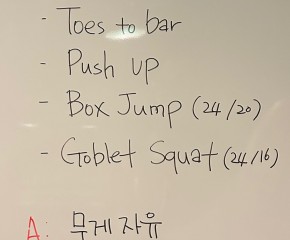 - Toes to bar
- Push up
- Box Jump (24/20)
- Goblet Squat (24/16)
A: 무게 자유